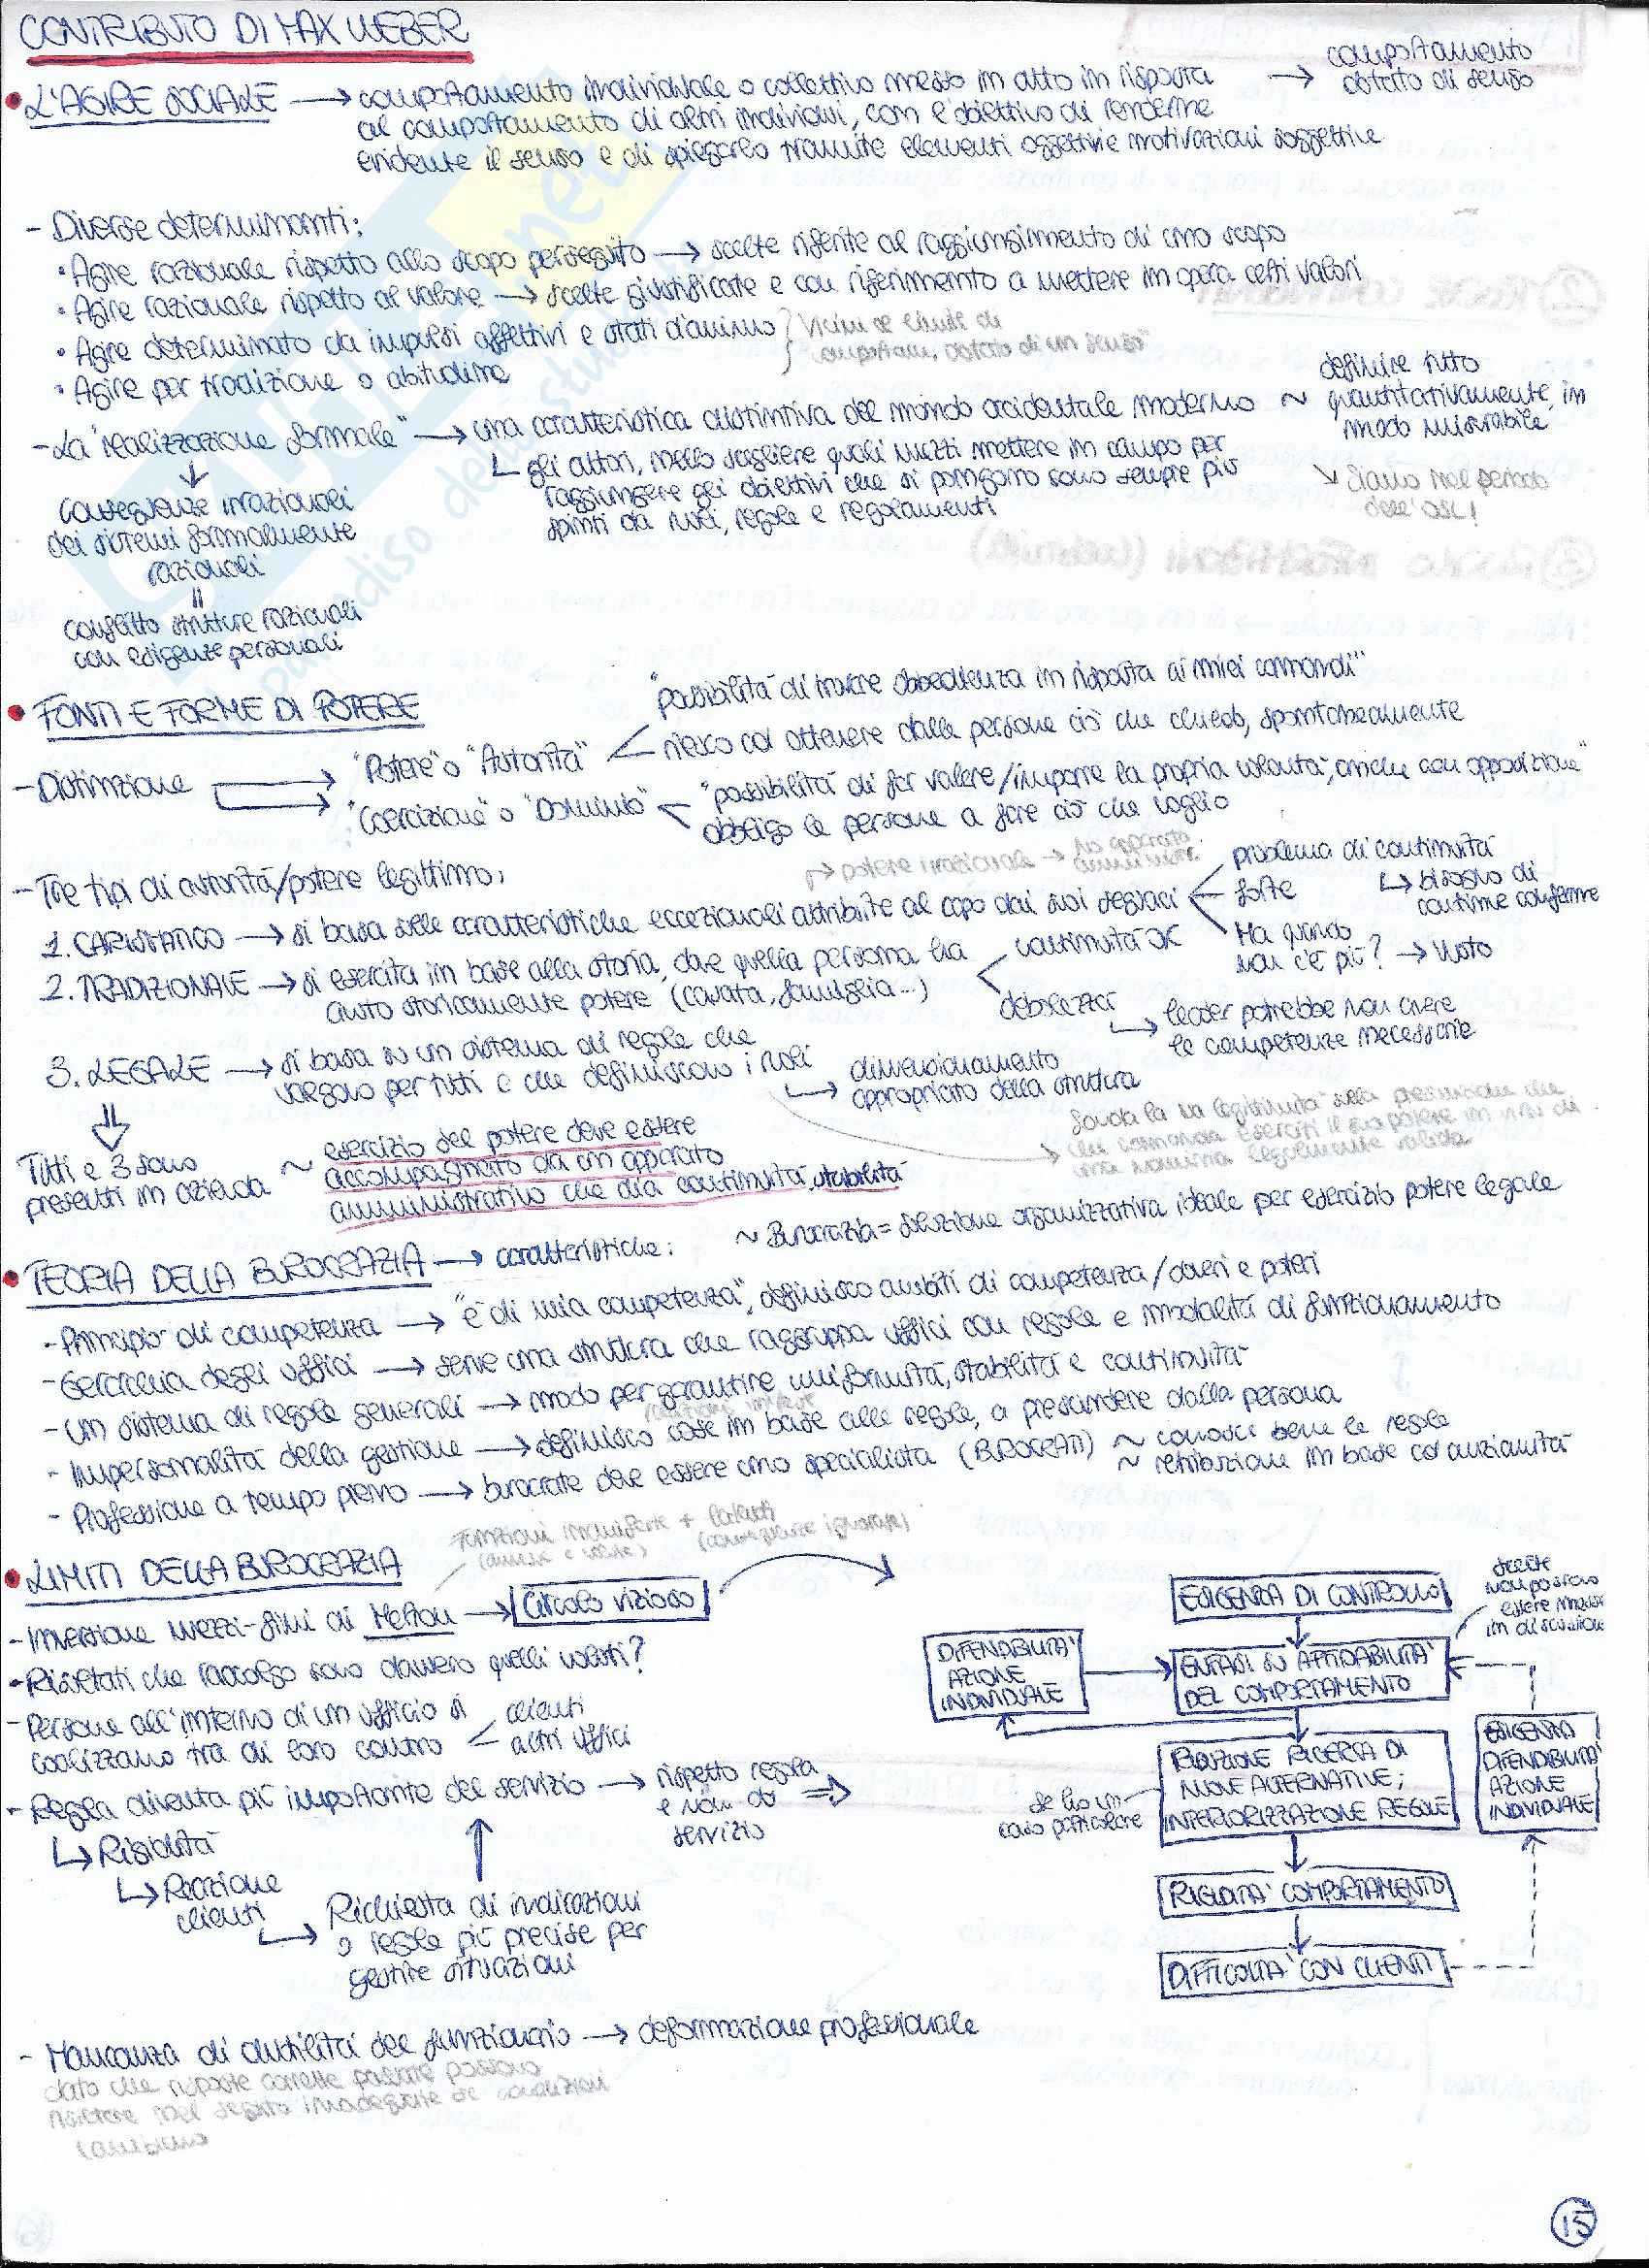 CONTRIBUTO DI MAX WEBER
• L'AGIRE SOCIALE → comportamento individuale o collettivo messo in atto in risposta → comportamento
al comportamento di altri individui, con l'obiettivo di renderne dotato di senso
evidente il senso e di spiegarlo tramite elementi oggettivi e motivazioni soggettive
- Diverse determinanti:
• Agire razionale rispetto allo scopo perseguito → scelte riferite al raggiungimento di uno scopo
• Agire razionale rispetto al valore → scelte giustificate e con riferimento a mettere in opera certi valori
• Agire determinato da impulsi affettivi e stati d'animo } Vicini al limite di
• Agire per tradizione o abitudine comportam. dotato di un senso"
- La "realizzazione formale" → una caratteristica distintiva del mondo occidentale moderno ~ definire tutto
quantitativamente, in
modo misurabile
↳ gli attori, nello scegliere quali mezzi mettere in campo per
raggiungere gli obiettivi che si pongono sono sempre più
spinti da ruoli, regole e regolamenti
↘ Siamo nel periodo
dell'OSL!
↓
conseguenze irrazionali
dei sistemi formalmente
razionali
=
conflitto strutture razionali
con esigenze personali
• FONTI E FORME DI POTERE
- Distinzione
→ "Potere" o "Autorità"
"possibilità di trovare obbedienza in risposta ai miei comandi"
riesco ad ottenere dalle persone ciò che chiedo, spontaneamente
→ "Coercizione" o "Dominio"
"possibilità di far valere/imporre la propria volontà, anche con opposizione"
obbligo le persone a fare ciò che voglio
- Tre tipi di autorità/potere legittimo:
→ potere irrazionale → no apparato
amministr.
1. CARISMATICO → si basa sulle caratteristiche eccezionali attribuite al capo dai suoi seguaci
problema di continuità
↳ bisogno di
continue conferme
forte
Ma quando
non c'è più? → Vuoto
2. TRADIZIONALE → si esercita in base alla storia, dove quella persona ha
avuto storicamente potere (casata, famiglia...)
continuità OK
debolezza
↳ leader potrebbe non avere
le competenze necessarie
3. LEGALE → si basa su un sistema di regole che
valgono per tutti e che definiscono i ruoli
↳ dimensionamento
appropriato della struttura
fonda la sua legittimità sulla presunzione che
chi comanda eserciti il suo potere in virtù di
una nomina legalmente valida
⇓
Tutti e 3 sono
presenti in azienda ~ esercizio del potere deve essere
accompagnato da un apparato
amministrativo che dia continuità, stabilità
~ Burocrazia = soluzione organizzativa ideale per esercizio potere legale
• TEORIA DELLA BUROCRAZIA → caratteristiche:
- Principio di competenza → "è di mia competenza", definisco ambiti di competenza/doveri e poteri
- Gerarchia degli uffici → serve una struttura che raggruppa uffici con regole e modalità di funzionamento
- Un sistema di regole generali → modo per garantire uniformità, stabilità e continuità
- Impersonalità della gestione → definisco cose in base alle regole, a prescindere dalla persona
- Professione a tempo pieno → burocrate deve essere uno specialista (BUROCRATI) ~ conosci bene le regole
~ retribuzione in base ad anzianità
• LIMITI DELLA BUROCRAZIA
Funzioni manifeste + latenti
(conseguenze ignorate)
- Inversione mezzi-fini di Merton → Circolo vizioso
- Risultati che raccolgo sono davvero quelli voluti?
- Persone all'interno di un ufficio si
coalizzano tra di loro contro < clienti
altri uffici
- Regola diventa più importante del servizio → rispetto regola
e non do
servizio
↳ Rigidità
↳ Reazione
clienti
↳ Richiesta di indicazioni
o regole più precise per
gestire situazioni
ESIGENZA DI CONTROLLO
scelte
non possono
essere messe
in discussione
DIFENDIBILITÀ
AZIONE
INDIVIDUALE
ENFASI SU AFFIDABILITÀ
DEL COMPORTAMENTO
RIDUZIONE RICERCA DI
NUOVE ALTERNATIVE;
INTERIORIZZAZIONE REGOLE
se ho un
caso particolare
ESIGENZA
DIFENDIBILITÀ
AZIONE
INDIVIDUALE
RIGIDITÀ COMPORTAMENTO
DIFFICOLTÀ CON CLIENTI
- Mancanza di duttilità del funzionario → deformazione professionale
dato che risposte corrette passate possono
risultare nel seguito inadeguate se condizioni
cambiano
15